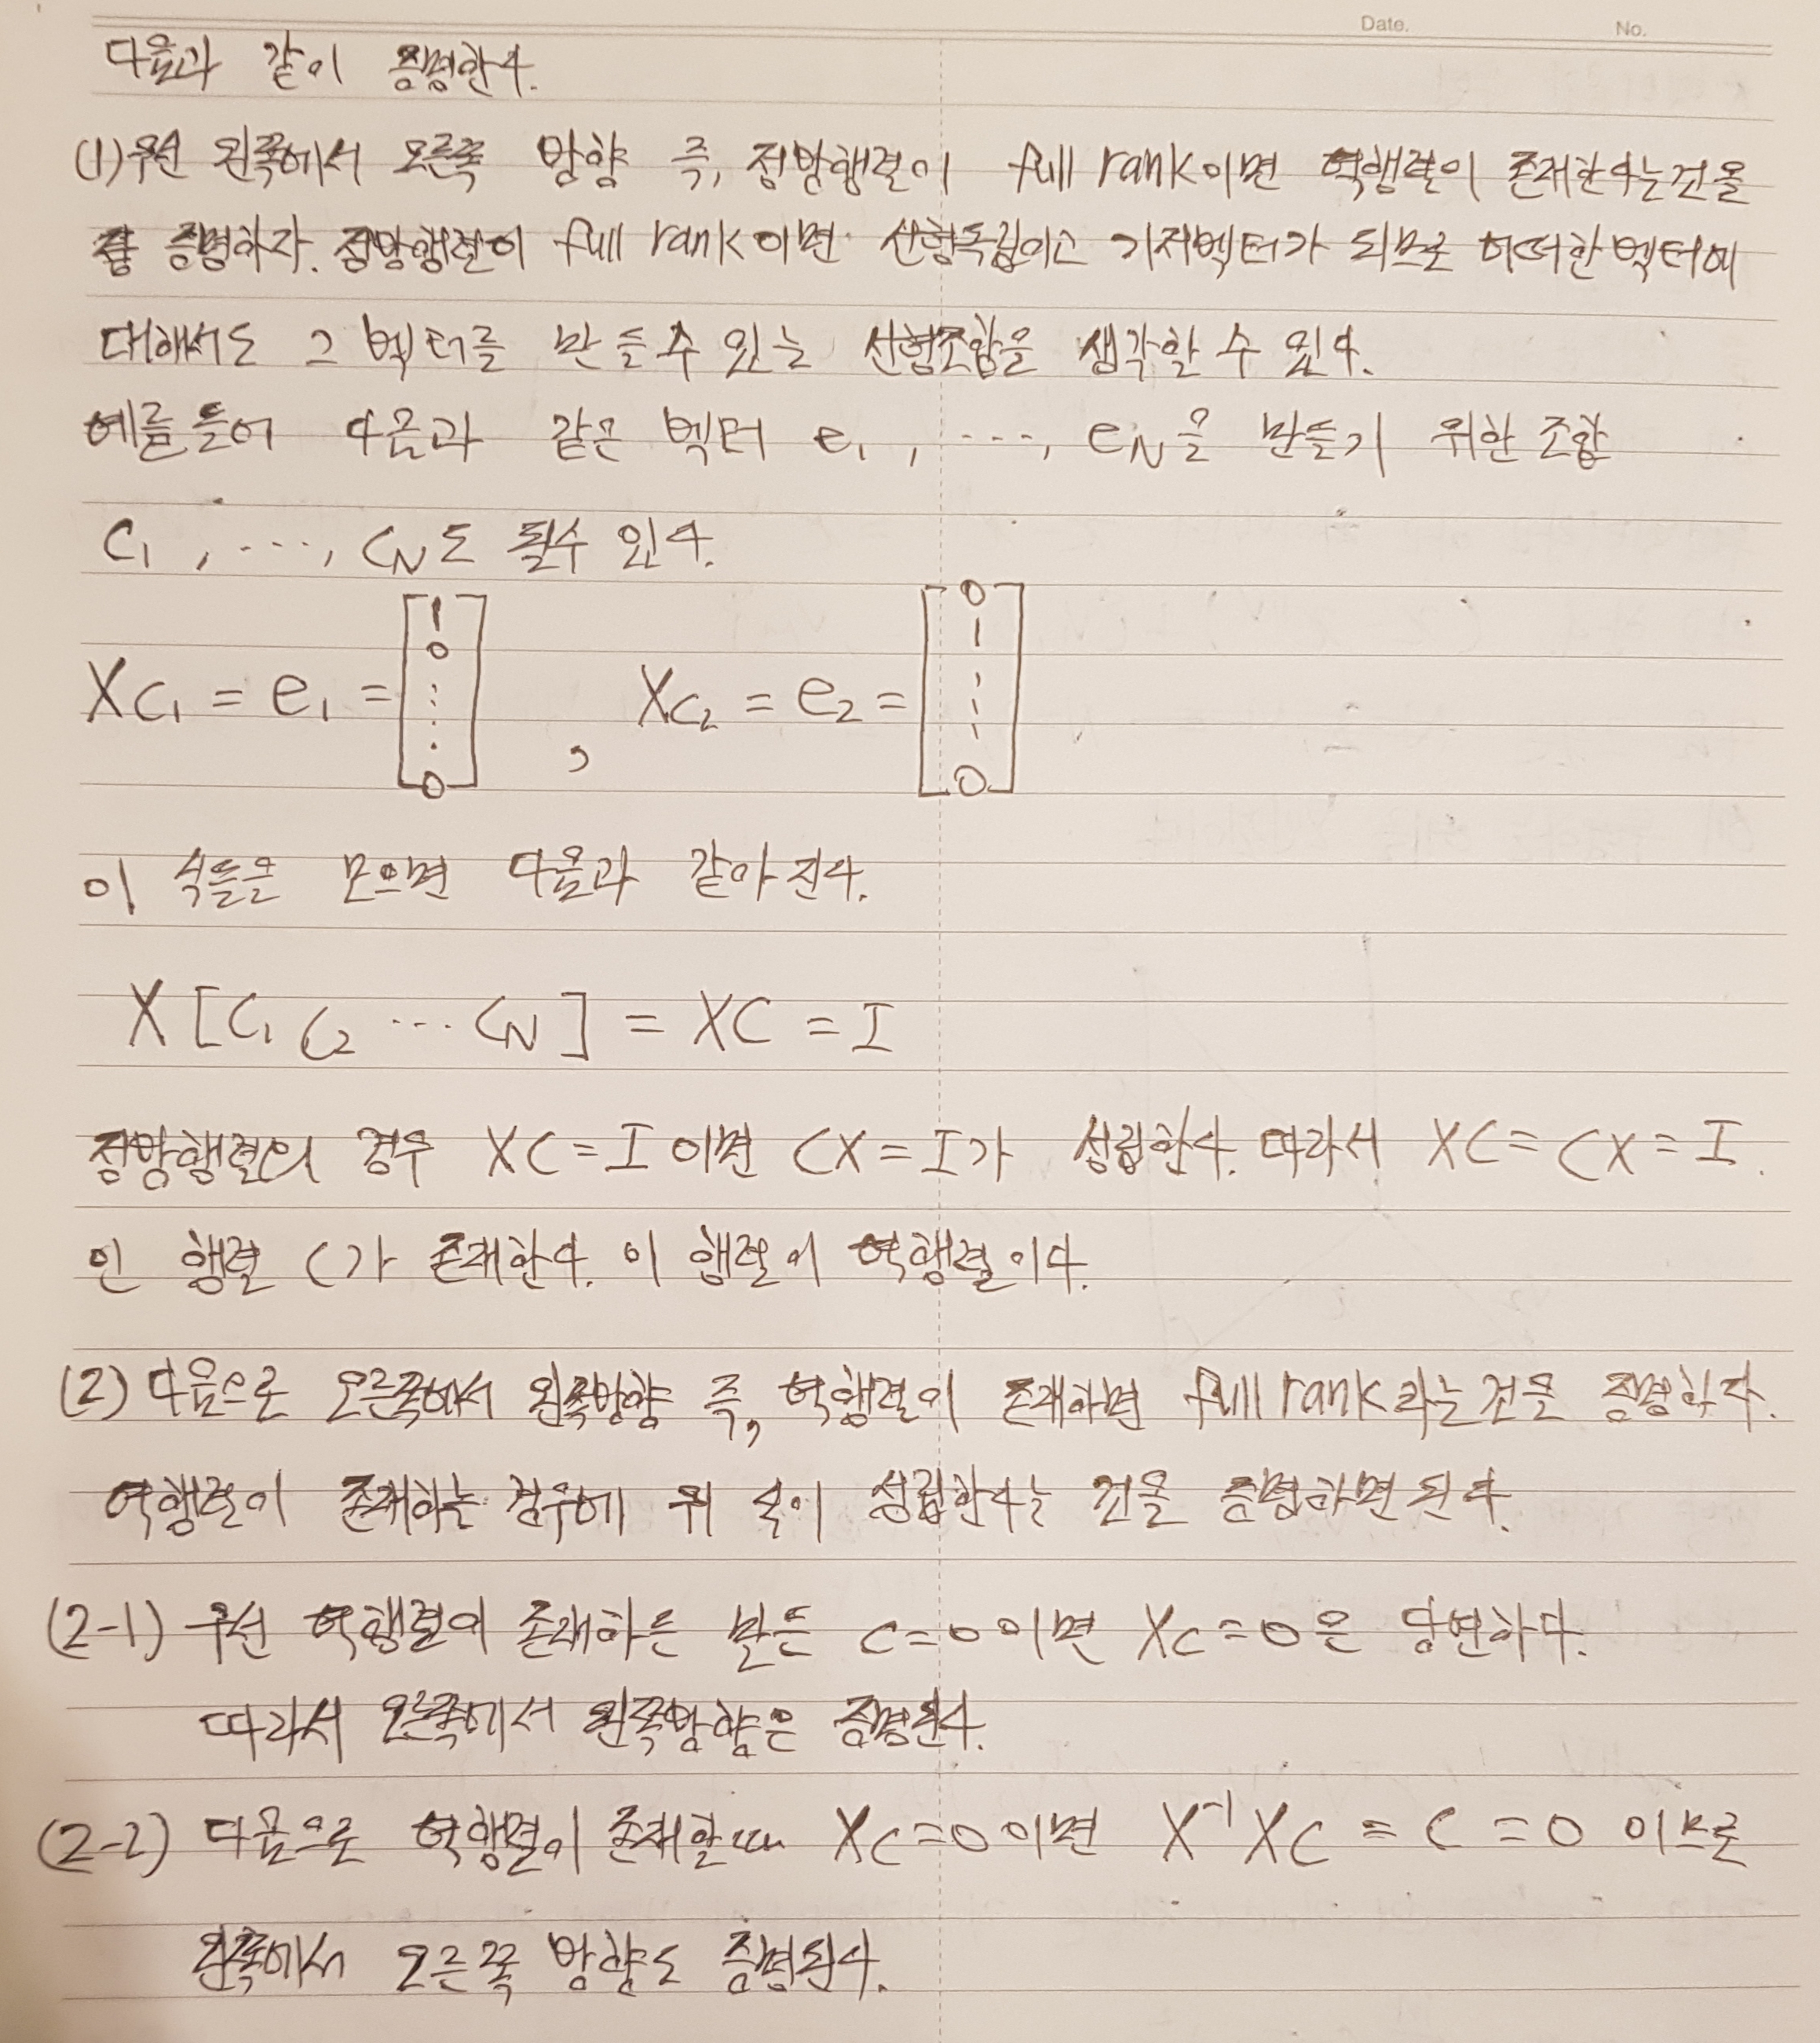 Date. No.
다음과 같이 증명한다.
(1) 우선 왼쪽에서 오른쪽 방향 즉, 정방행렬이 full rank이면 역행렬이 존재한다는것을
증명하자. 정방행렬이 full rank이면 선형독립이고 기저벡터가 되므로 어떠한 벡터에
대해서도 그 벡터를 만들수 있는 선형조합을 생각할 수 있다.
예를들어 다음과 같은 벡터 e₁, ⋯, e_N을 만들기 위한 조합
c₁, ⋯, c_N도 될수 있다.
Xc₁ = e₁ = [1 0 ⋮ 0], Xc₂ = e₂ = [0 1 ⋮ 0]
이 식들을 모으면 다음과 같아 진다.
X [c₁ c₂ ⋯ c_N] = XC = I
정방행렬의 경우 XC = I 이면 CX = I가 성립한다. 따라서 XC = CX = I.
인 행렬 C가 존재한다. 이 행렬이 역행렬이다.
(2) 다음으로 오른쪽에서 왼쪽방향 즉, 역행렬이 존재하면 full rank라는것을 증명하자.
역행렬이 존재하는 경우에 위 식이 성립한다는 것을 증명하면 된다.
(2-1) 우선 역행렬이 존재하든 말든 c=0이면 Xc=0은 당연하다.
따라서 오른쪽에서 왼쪽방향은 증명된다.
(2-2) 다음으로 역행렬이 존재할때 Xc=0이면 X⁻¹Xc = c = 0 이므로
왼쪽에서 오른쪽 방향도 증명된다.